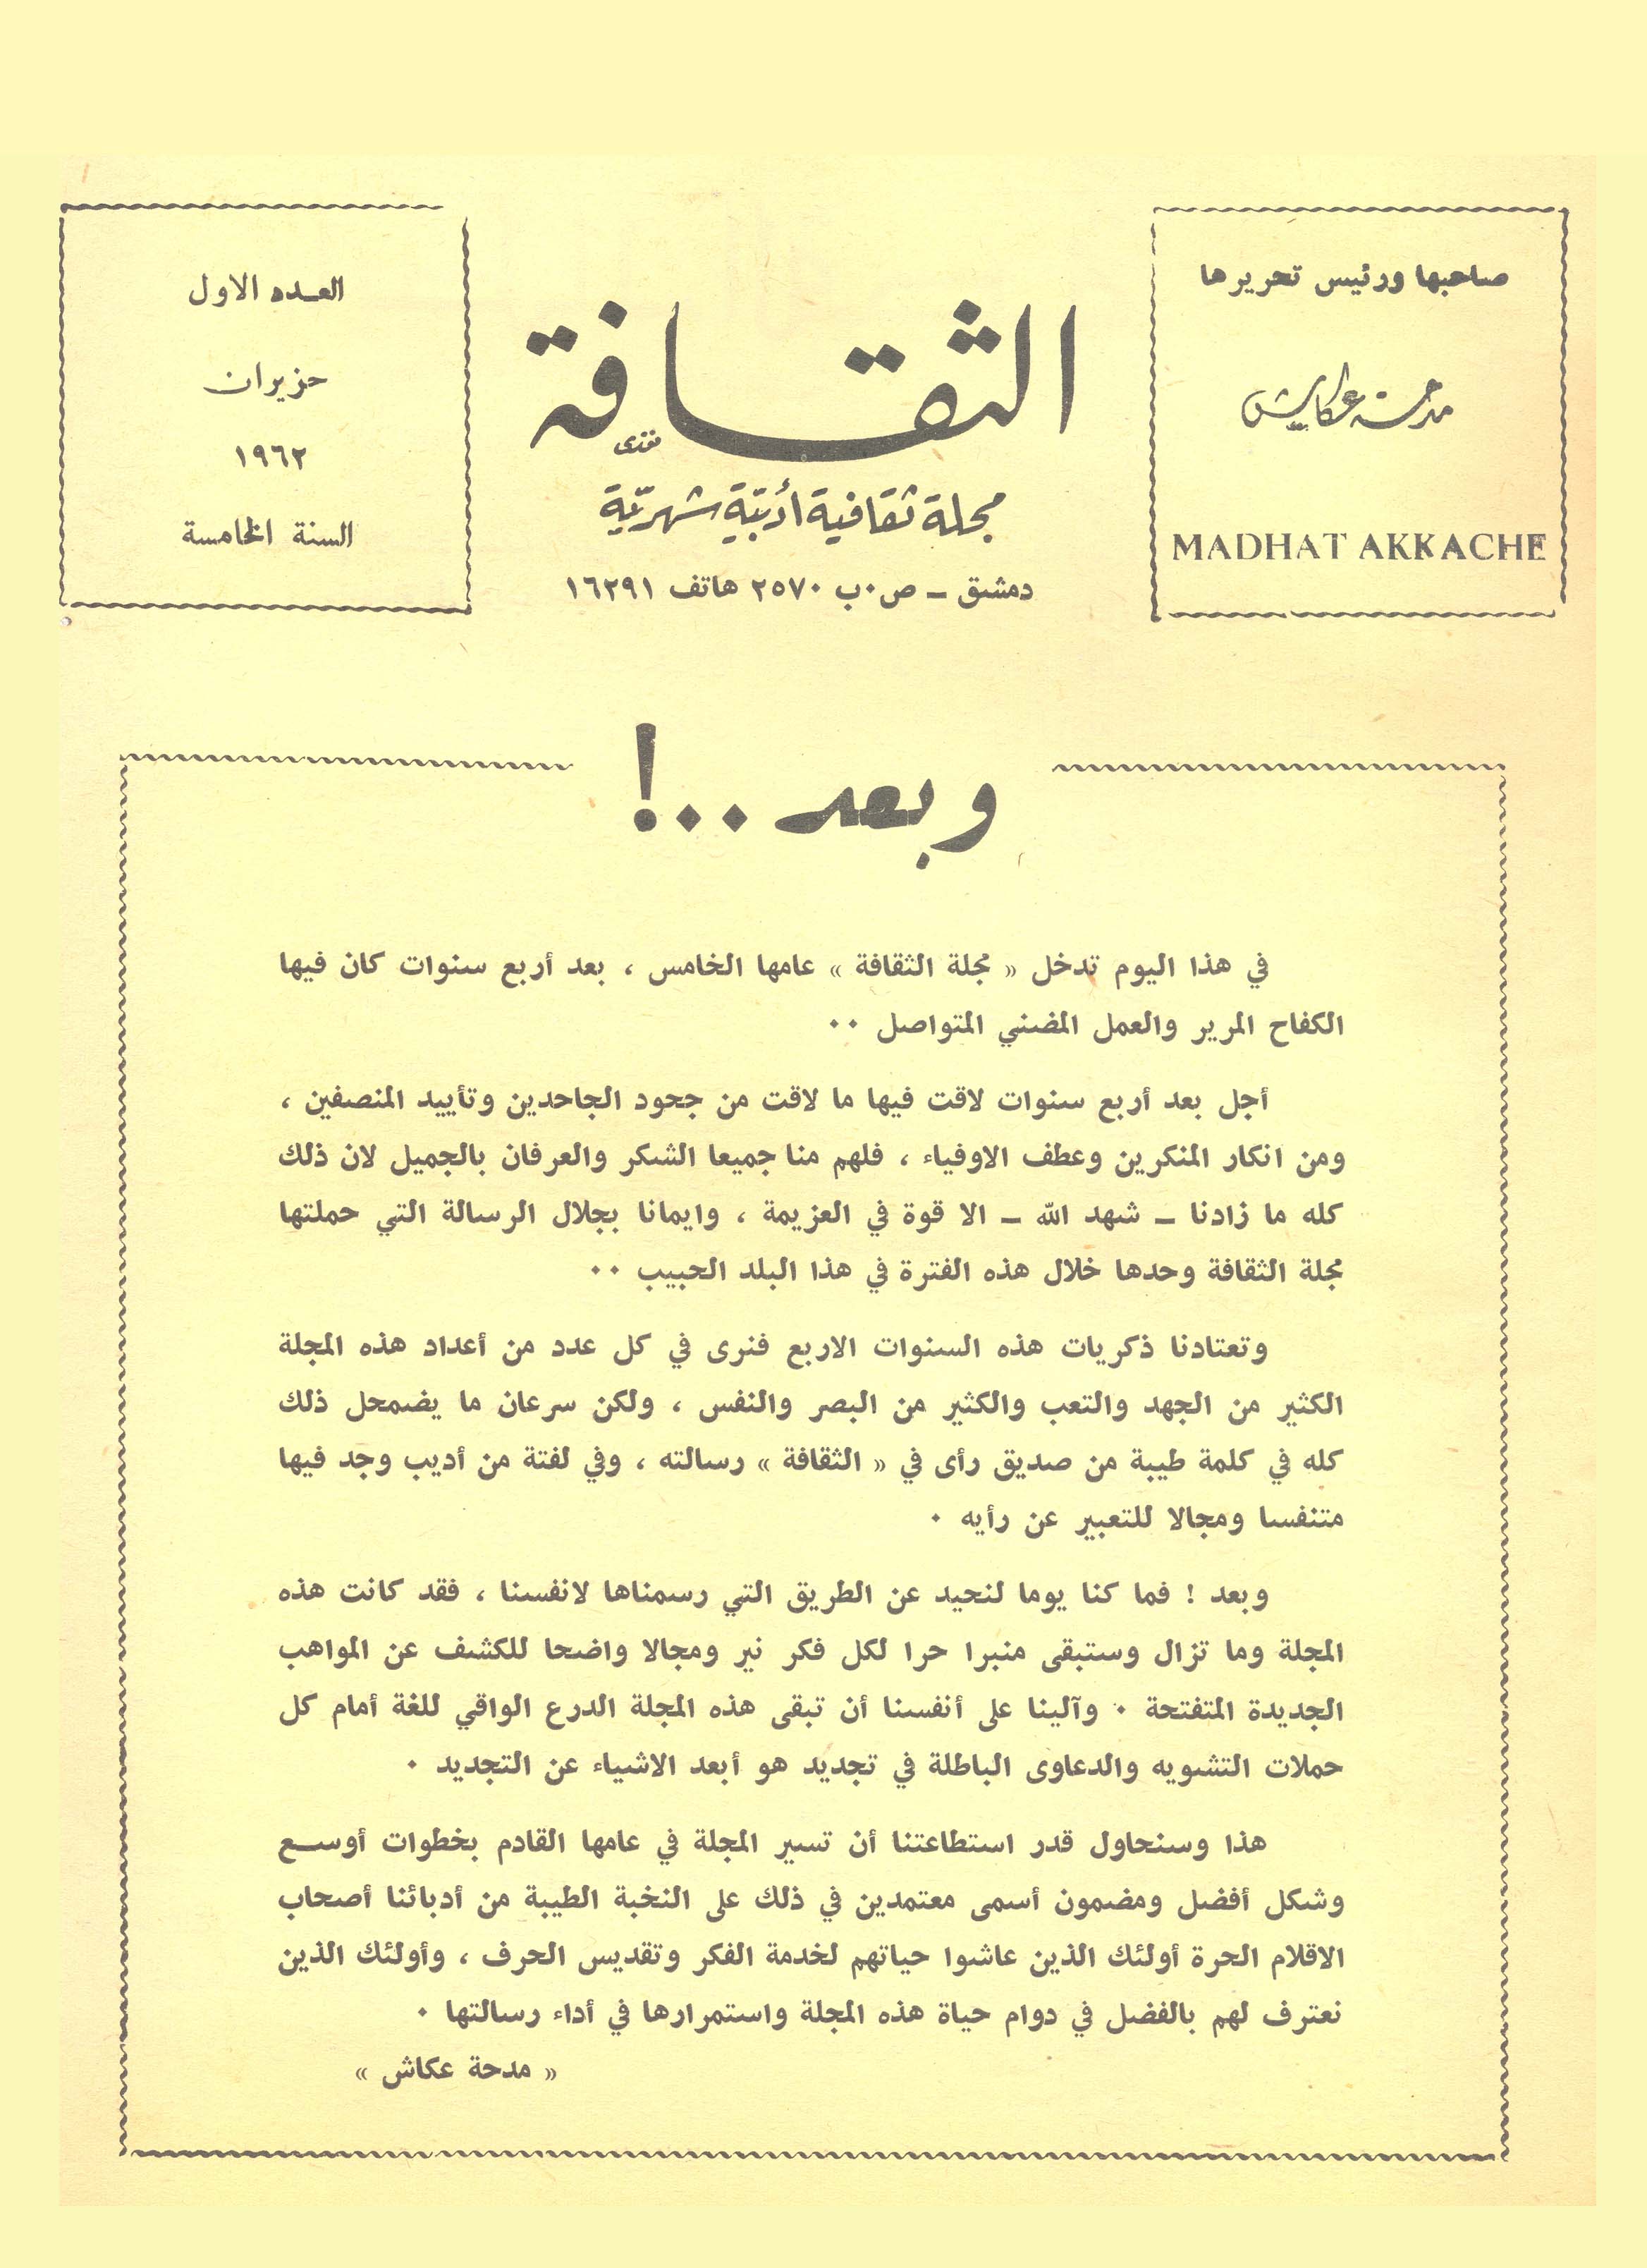 صاحبها ورئيس تحريرها
مدحة عكاش
MADHAT AKKACHE
الثقافة
مجلة ثقافية أدبية شهرية
دمشق – ص٠ب ٢٥٧٠ هاتف ١٦٢٩١
العدد الاول
حزيران
١٩٦٢
السنة الخامسة
وبعد ..!
في هذا اليوم تدخل « مجلة الثقافة » عامها الخامس ، بعد أربع سنوات كان فيها
الكفاح المرير والعمل المضني المتواصل ٠٠
أجل بعد أربع سنوات لاقت فيها ما لاقت من جحود الجاحدين وتأييد المنصفين ،
ومن انكار المنكرين وعطف الاوفياء ، فلهم منا جميعا الشكر والعرفان بالجميل لان ذلك
كله ما زادنا – شهد الله – الا قوة في العزيمة ، وايمانا بجلال الرسالة التي حملتها
مجلة الثقافة وحدها خلال هذه الفترة في هذا البلد الحبيب ٠٠
وتعتادنا ذكريات هذه السنوات الاربع فنرى في كل عدد من أعداد هذه المجلة
الكثير من الجهد والتعب والكثير من البصر والنفس ، ولكن سرعان ما يضمحل ذلك
كله في كلمة طيبة من صديق رأى في « الثقافة » رسالته ، وفي لفتة من أديب وجد فيها
متنفسا ومجالا للتعبير عن رأيه ٠
وبعد ! فما كنا يوما لنحيد عن الطريق التي رسمناها لانفسنا ، فقد كانت هذه
المجلة وما تزال وستبقى منبرا حرا لكل فكر نير ومجالا واضحا للكشف عن المواهب
الجديدة المتفتحة ٠ وآلينا على أنفسنا أن تبقى هذه المجلة الدرع الواقي للغة أمام كل
حملات التشويه والدعاوى الباطلة في تجديد هو أبعد الاشياء عن التجديد ٠
هذا وسنحاول قدر استطاعتنا أن تسير المجلة في عامها القادم بخطوات أوسع
وشكل أفضل ومضمون أسمى معتمدين في ذلك على النخبة الطيبة من أدبائنا أصحاب
الاقلام الحرة أولئك الذين عاشوا حياتهم لخدمة الفكر وتقديس الحرف ، وأولئك الذين
نعترف لهم بالفضل في دوام حياة هذه المجلة واستمرارها في أداء رسالتها ٠
« مدحة عكاش »